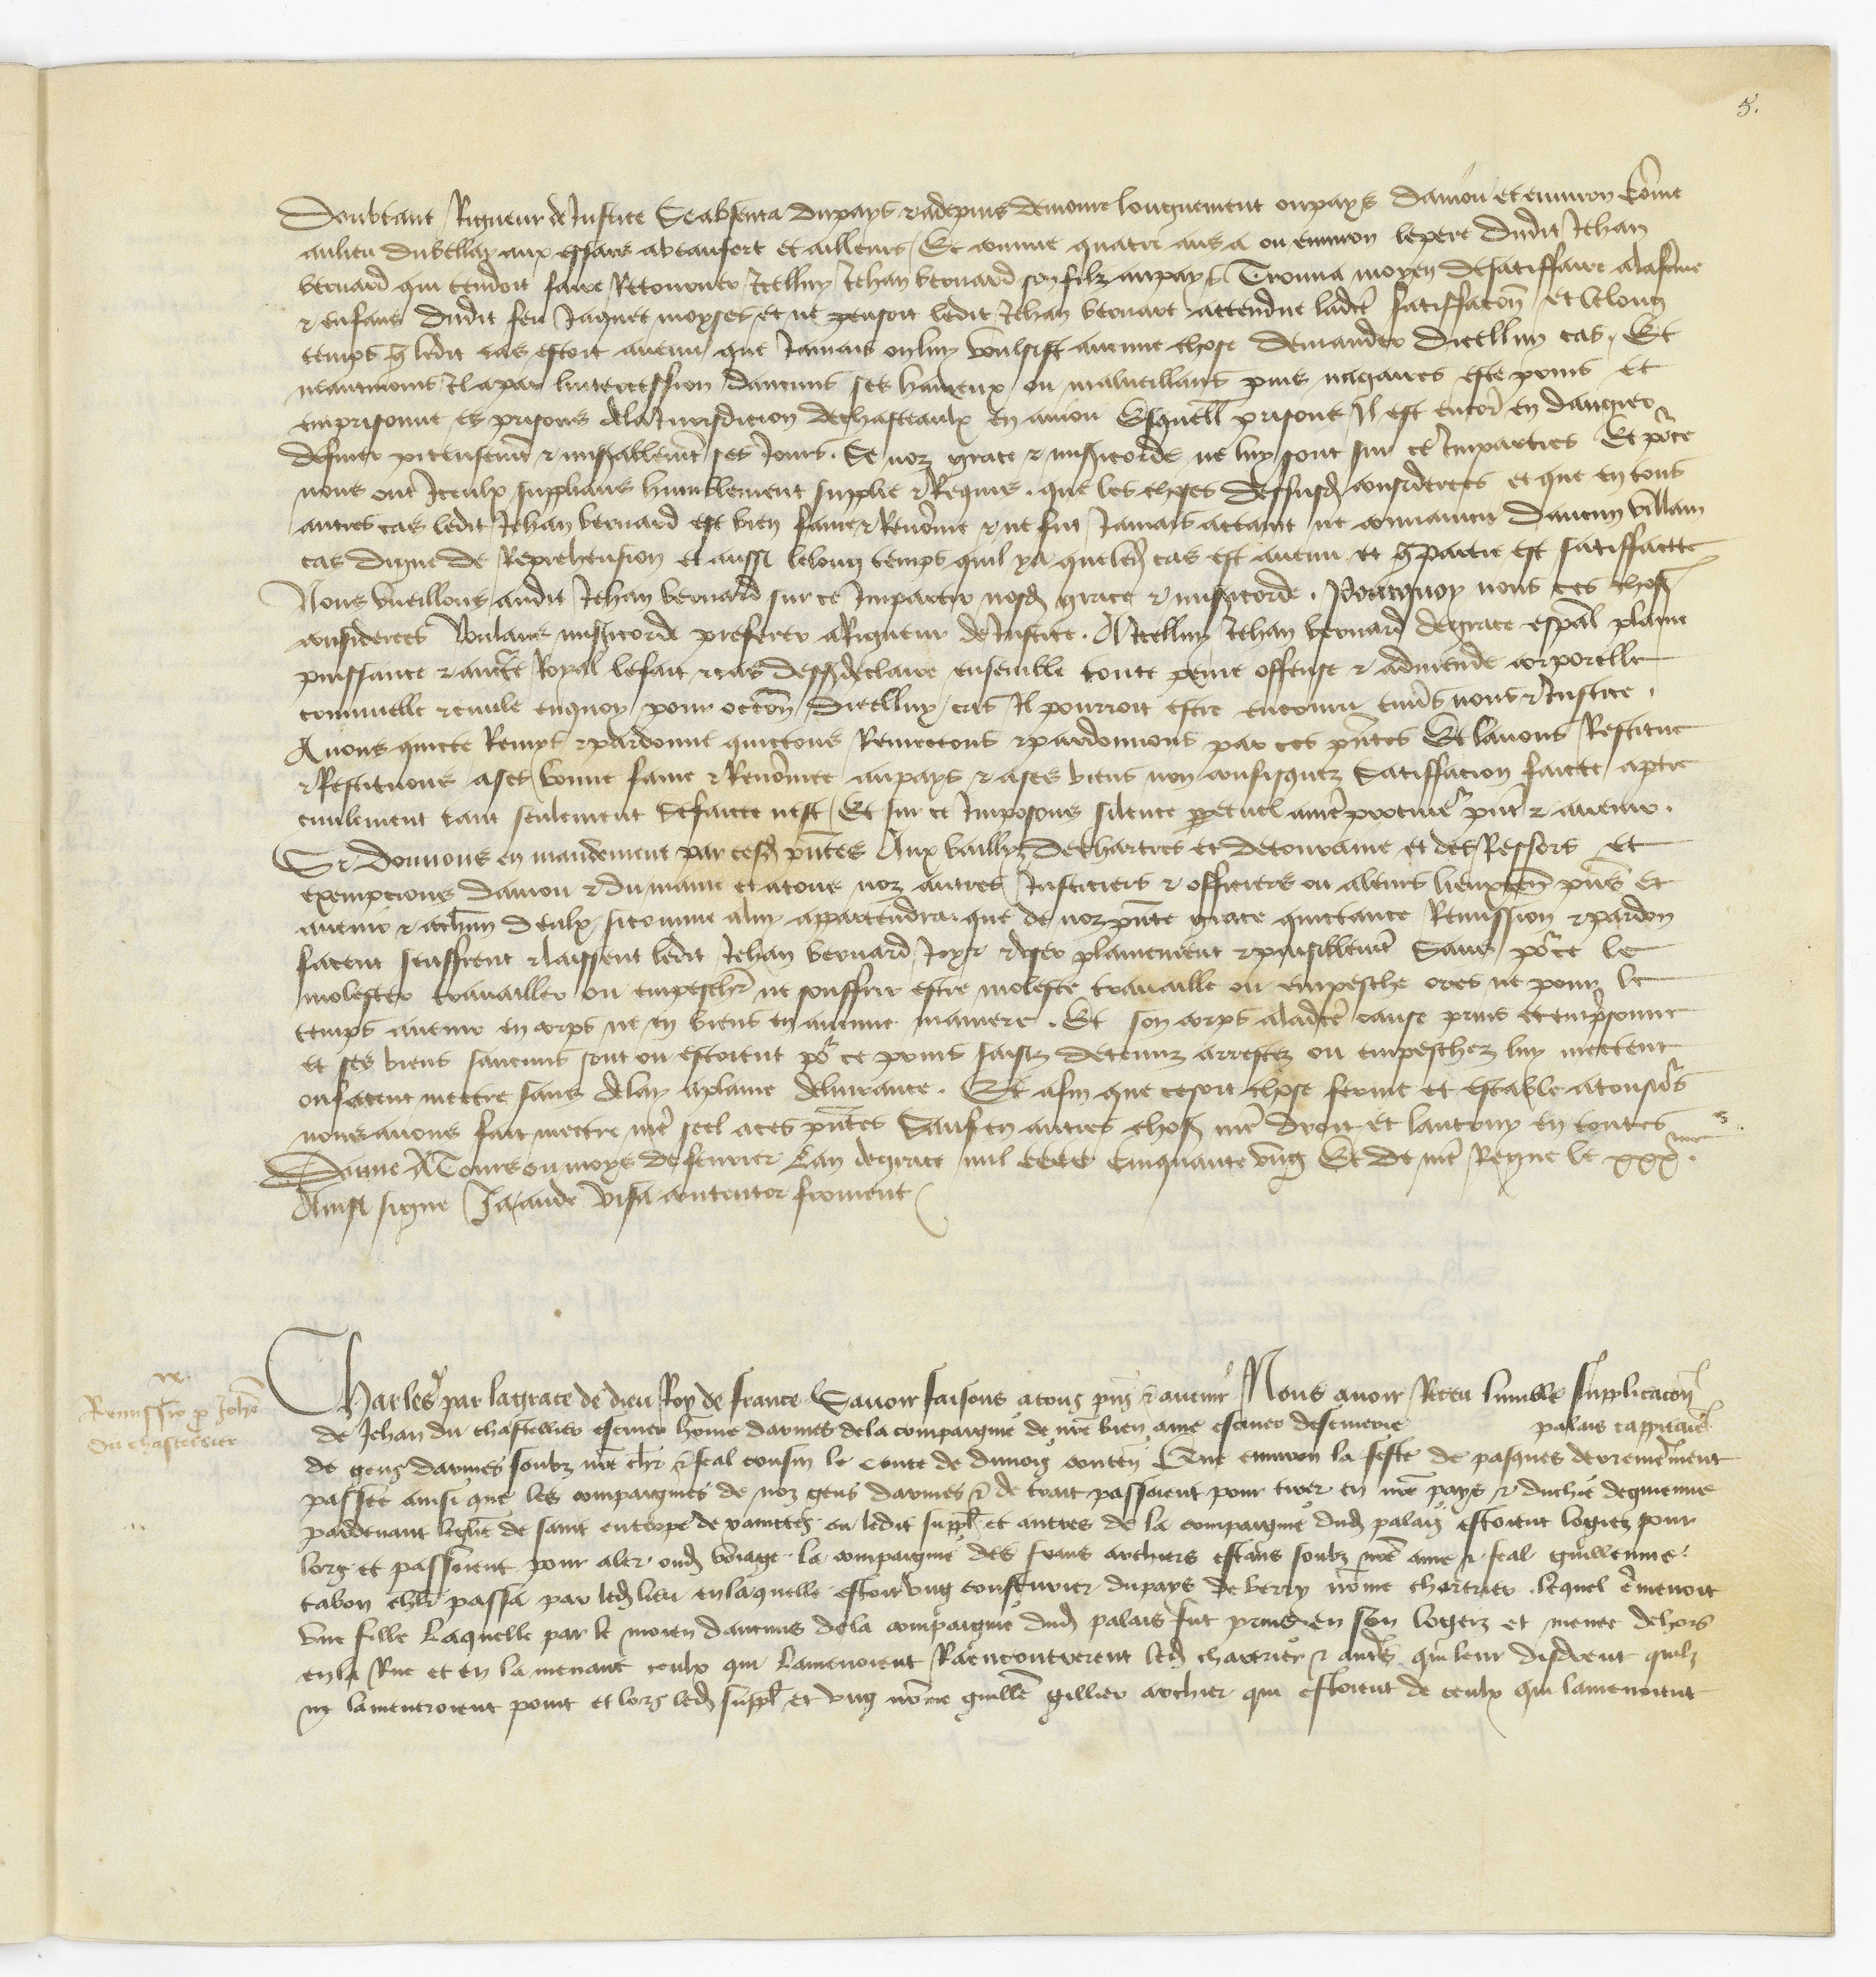 5.
Doubtant Rigueur de Justice Se absenta du pays et a depuis demoure longuement ou pays danjou et environ Come
au lieu du bellay aux essars a beaufort et ailleurs Et comme quatre ans a ou environ le pere dudit Jehan
beruard qui tendoit faire Retourner Icelluy Jehan beruard son filz au pays Trouva moyen de satiffaire a la feme
et enfans dudit feu Jaquet moyses et ne pensoit ledit Jehan beruart attendue ladte satiffacon et le long
temps q ledit cas estoit avenu que Jamais on luy voulsist aucune chose demander dicelluy cas. Et
neantmoins Il a par lintercession daucuns ses haineux ou malveillans puis nagaires este prins et
emprisonne es prisons de la Jurisdicion de chasteaulx en anjou Esquell prisons Il est encor en dangier
de finer piteusemt et misablemt ses Jours. Se noz grace et misicorde ne luy sont sur ce Imparties Et porce
nous ont Iceulx supplians humblement supplie et Requis. que les choses dessusd considerees et que en tous
autres cas ledit Jehan beruard est bien fame et Renome et ne fut Jamais attaint ne convaincu daucun villain
cas digne de Reprehension et aussi le long temps quil ya que led cas est avenu et q partie est satiffaitte
Nous vueillons audit Jehan beruard sur ce Impartir nosd grace et misicorde. Pourquoy nous ces chos
considerees Voulans misicorde preferer a Rigueur de Justice. A Icelluy Jehan beruard de grace espal plaine
puissance et aucte Royal le fait et cas dessus declaire ensemble toute peine offense et admende corporelle
criminelle et civile enquoy pour occon dicelluy cas Il pourroit estre encouru envers nous et Justice.
Avons quicte Remys et pardonne quictons Remectons et pardonnons par ces pntes Et lavons Restitue
et Restituons a ses bonne fame et Renomee au pays et a ses biens non confisquez Satiffacion faicte a ptie
civilement tant seulement se faicte nest Et sur ce Imposons silence ppetuel a nre procureur pnt et avenir.
Si donnons en mandement par cesd pntes Aux baillyz de chartres et de touraine et des Ressors Et
exempcions danjou et du maine et a tous noz autres Justiciers et officiers ou a leurs lieuxten pns Et
avenir et a chun deulx si comme a luy appartendra. que de noz pnte grace quictance Remission et pardon
facent seuffrent et laissent ledit Jehan beruard Joyr et user plainement et paisiblemt Sans porce le
molester travailler ou empescher ne souffrir estre moleste travaille ou empesche ores ne pour le
temps avenir en corps ne en biens en aucune maniere. Et son corps a ladte cause prins et empsonne
et ses biens saucuns sont ou estoient por ce prins saisiz detenuz arrestez ou empeschez luy mectent
ou facent mettre sans delay a plaine delivrance. Et afin que ce soit chose ferme et estable a tousjours
nous avons fait mectre nre seel a ces pntes Sauf en autres chos nre droit et lautruy en toutes
Donne A Tours ou moys de fevrier Lan de grace mil cccc Cinquante ung Et de nre Regne le xxxme.
Ainsi signe Ja. aude Visa contentor froment
ix.
Remissio p Johe
du chastellier
Charles par la grace de dieu Roy de france Savoir faisons a tous pns et avenir Nous avoir Receu lumble supplicacon
de Jehan du chastellier escuier home darmes de la compaignie de nre bien ame escuier descuierie palais cappitaie
de gens darmes soubz nre chr et feal cousin le conte de dunois conten Que environ la feste de pasques derrenierement
passee ainsi que les compaignies de noz gens darmes et de trait passoient pour tirer en nre pays et duchie de guienne
pardevant leglise de saint eutrope de xainctes ou ledit suppl et autres de la compaignie dud palais estoient logiez pour
lors et passoient pour aler oud voiage la compaignie des frans archiers estans soubz nre ame et feal guillenme
tabon chlr passa par led lieu en laquelle estoit ung consturier du pays de berry nome chartrier. lequel emenoit
une fille Laquelle par le moien daucuns de la compaignie dud palais fut prinse en son logeiz et menee dehors
en la Rue et en la menant ceulx qui lamenoient Raencontrerent led chartrier et autrs qui leur disdrent quilz
ne lameneroient point et lors led suppl et ung nome guille gillier archier qui estoient de ceulx qui lamenoient